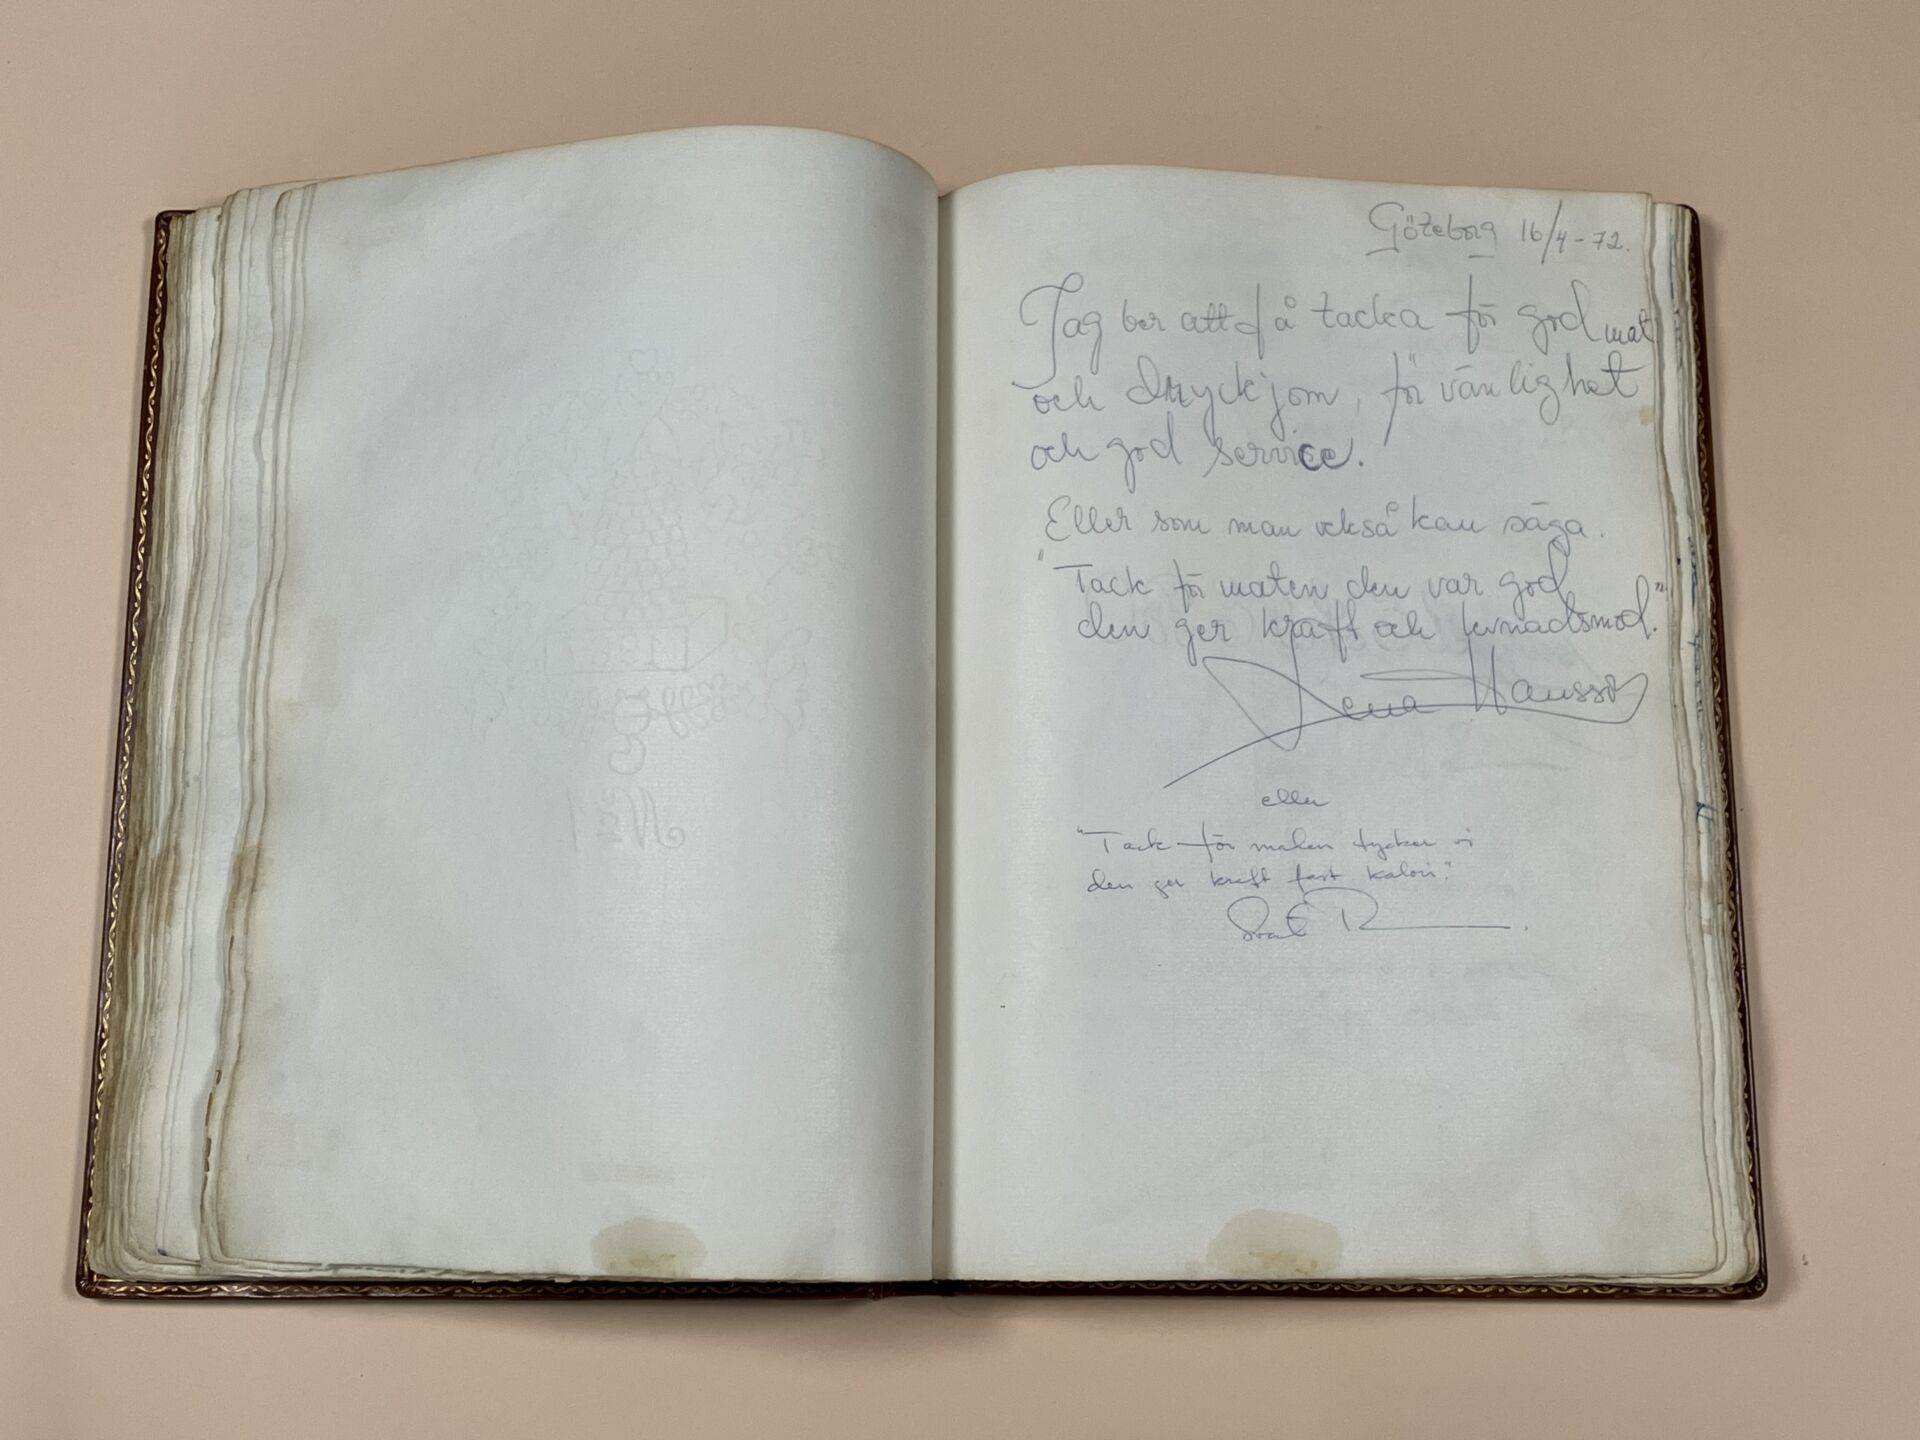 Göteborg 16/4-72.
Jag ber att få tacka för god mat
och dryckjom, för vänlighet
och god service.
Eller som man också kan säga.
"Tack för maten den var god
den ger kraft och levnadsmod."
Lena Hansson
eller
"Tack för maten tycker vi
den ger kraft fast kalori."